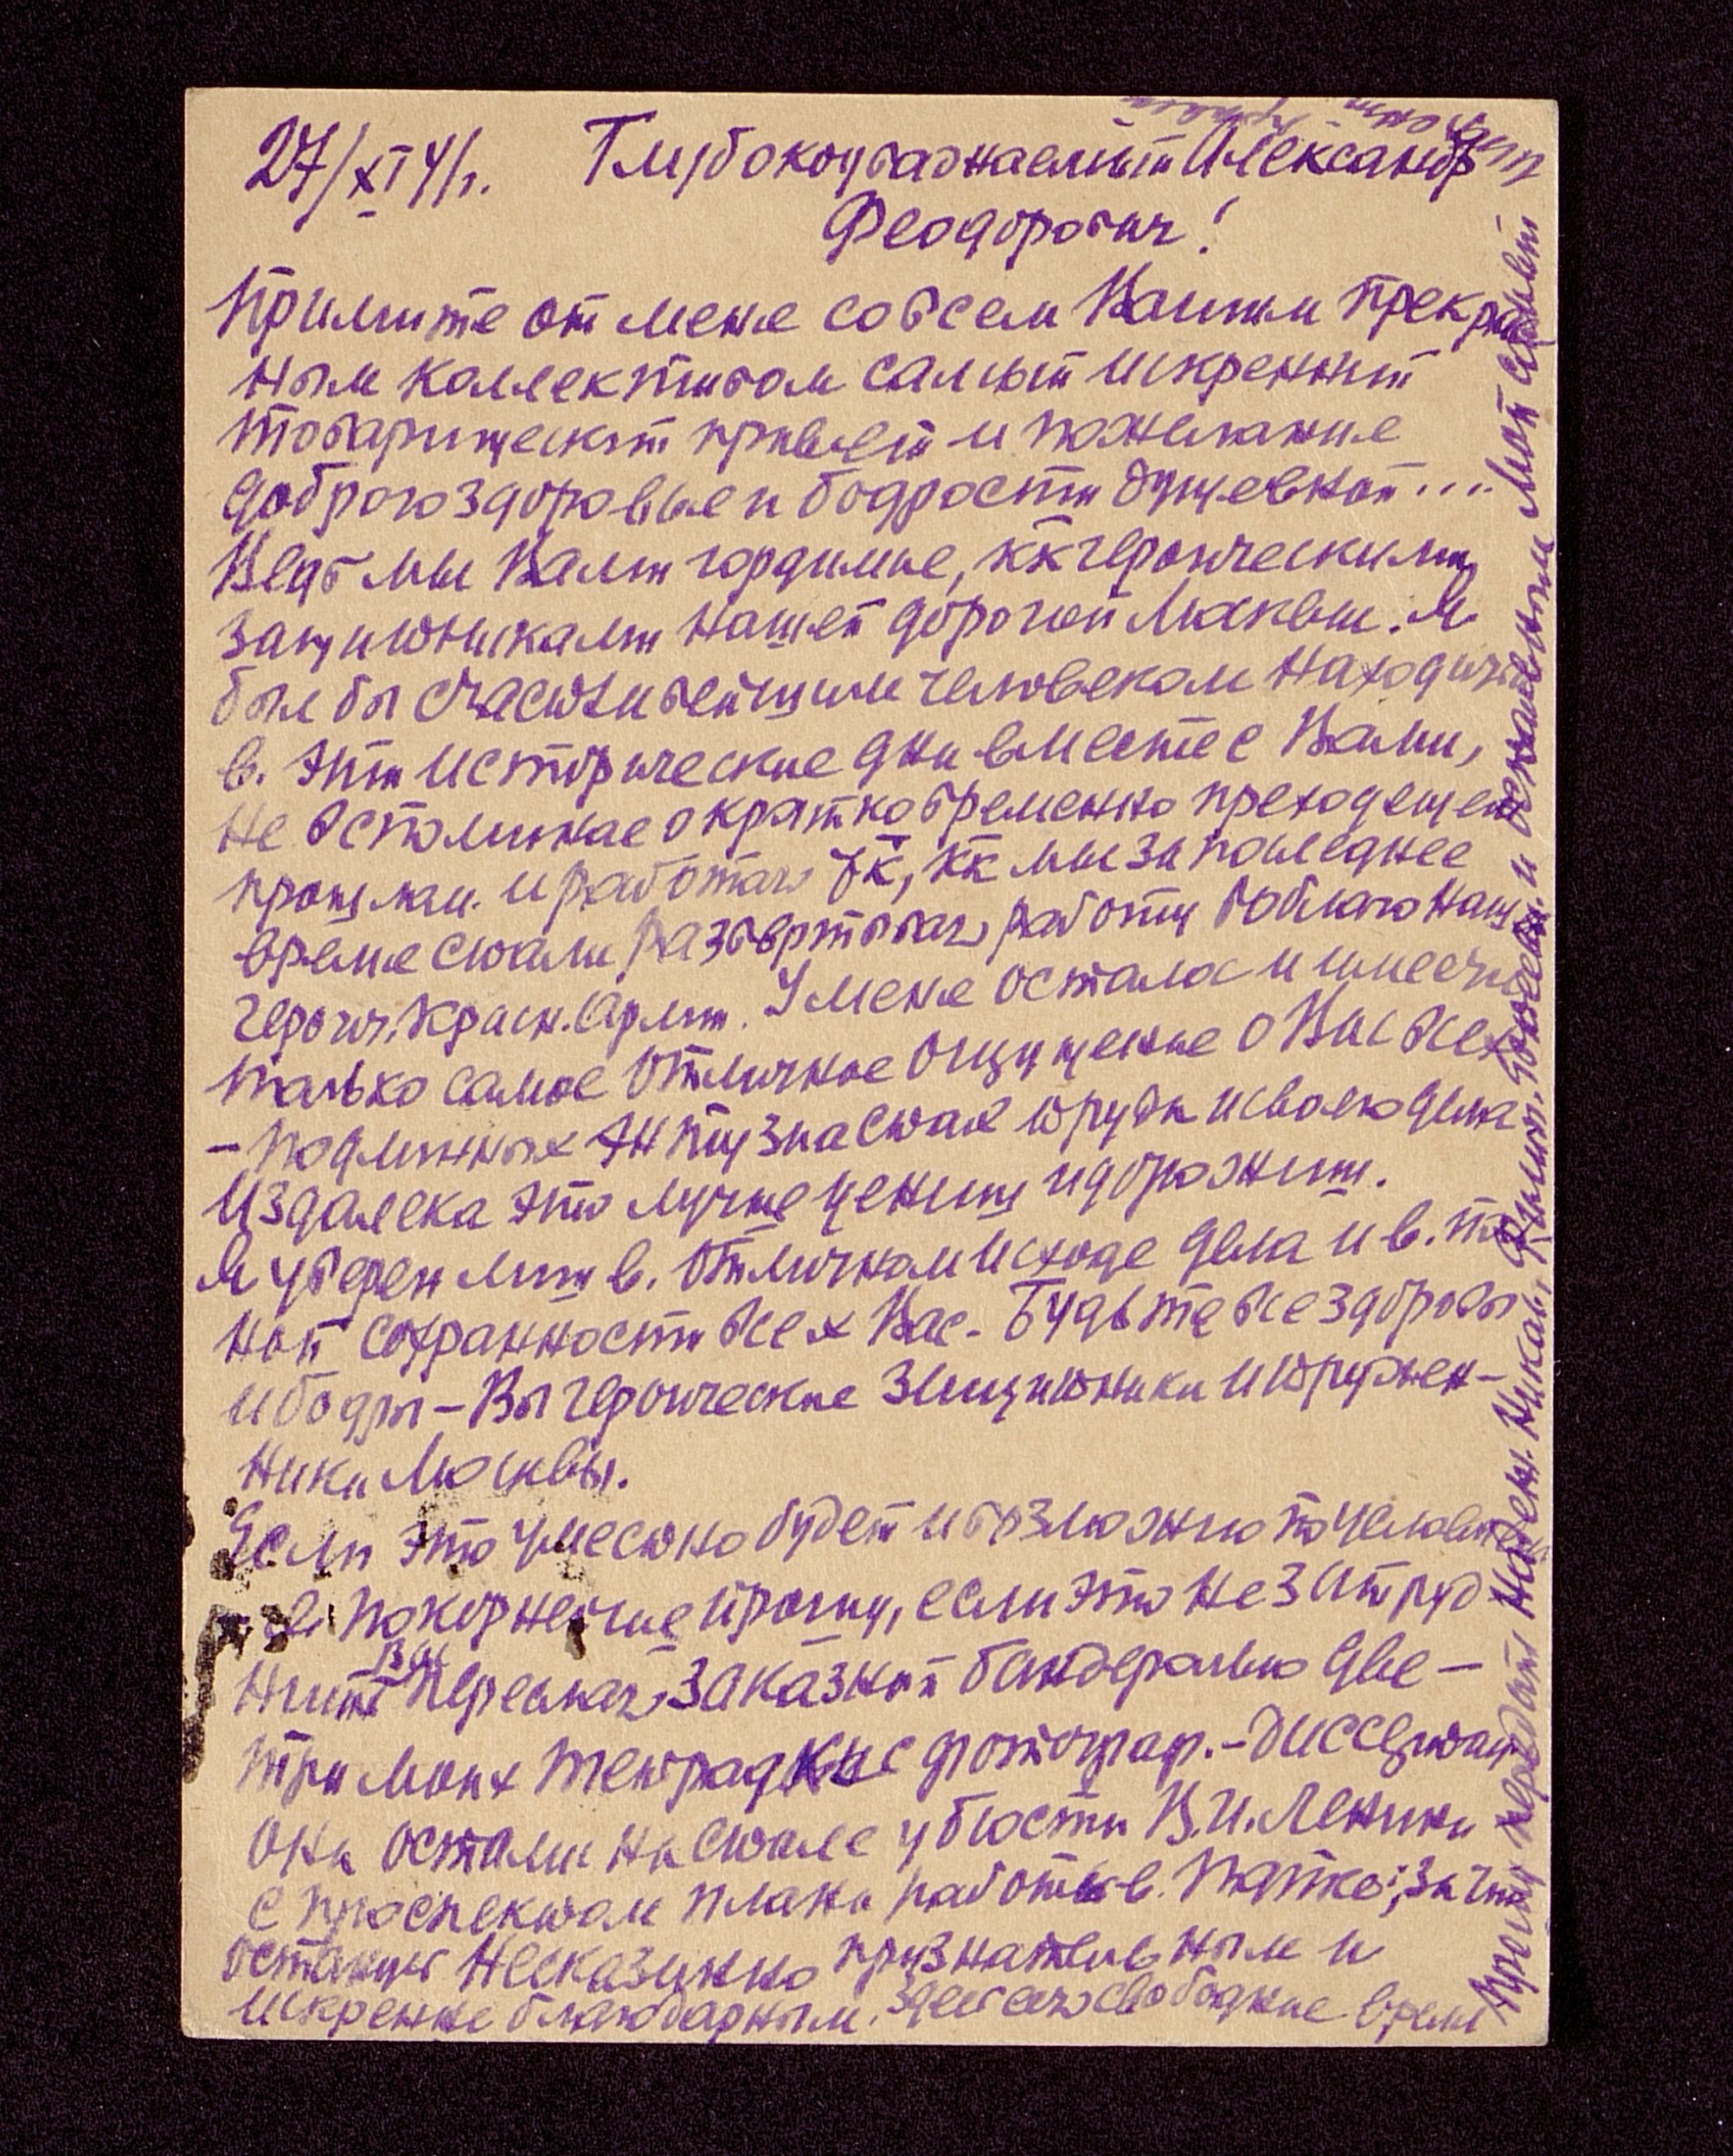 27/XI 41г. Глубокоуважаемый Александр
Феодорович!
Примите от меня со всем Вашим прекрас
ным коллективом самый искренний
товарищеский привет и пожелание
доброго здоровья и бодрости душевной...
Ведь мы Вами гордимые, кк героическими
защитниками нашей дорогой Москвы. Я
был бы счастливейшим человеком находить
в. эти исторические дни вместе с Вами,
не вспоминае о кратковременно преходящем
прошлом. и работать тк, кк мы за последнее
время стали развертывать работу во благо наш
героич. Красн. Арми. У меня остало и имеет
только самое отличное ощущение о Вас всех
– подлинных энтузиастах труда и своего дела
Издалека это лучше ценишь и дорожишь.
Я уверен в. отличном исходе дела и в.
ной сохранности всех Вас. Будьте все здоровы
и бодры – Вы героические защитники и тружен-
ники Москвы.
Если это уместно будет и возможно
покорнейше прошу, если это не затруд
нит Вас переслать заказной бандеролью две –
три моих тетрадки с фотограф. –
они остали на столе у бюста В.И. Ленина
с проспектом плана работы в. папке; за что
останусь несказанно признательным и
искренне благодарным. Здесь есть свободное время
Прошу передать Надежд. Никол., и остальным мой